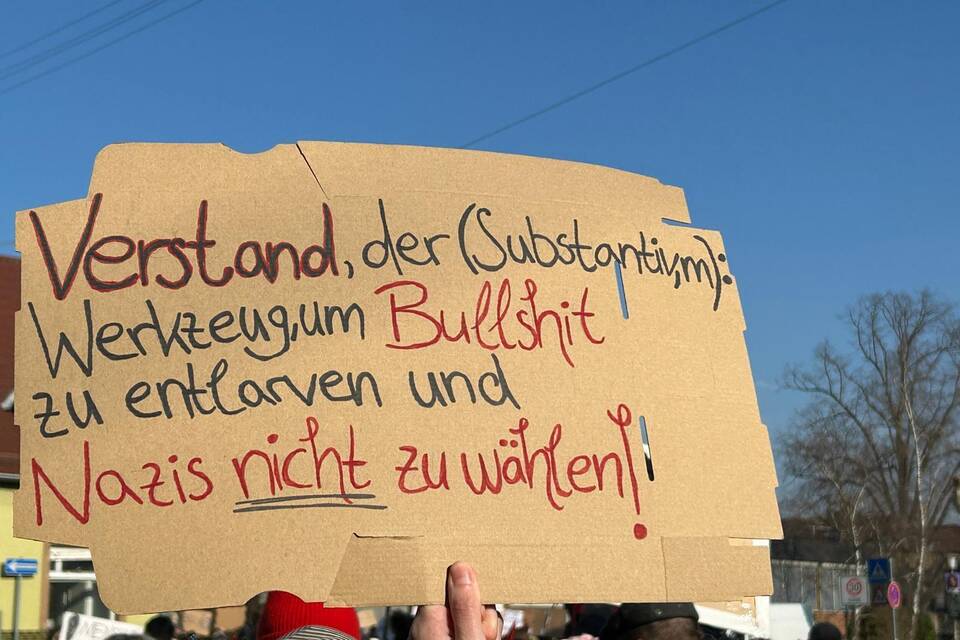 Verstand, der (Substantiv, m):
Werkzeug, um Bullshit
zu entlarven und
Nazis nicht zu wählen!
30